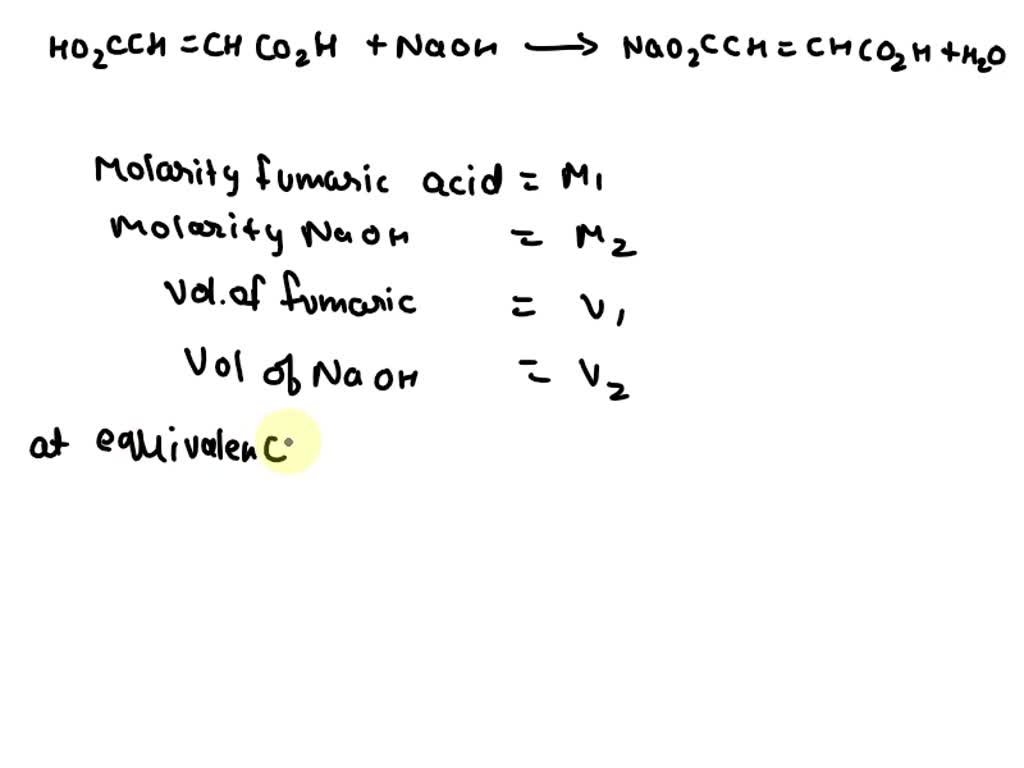 HO₂CCH=CHCO₂H + NaOH → NaO₂CCH=CHCO₂H + H₂O
Molarity fumaric acid = M₁
Molarity NaOH = M₂
Vol. of fumaric = V₁
Vol of NaOH = V₂
at equivalenc